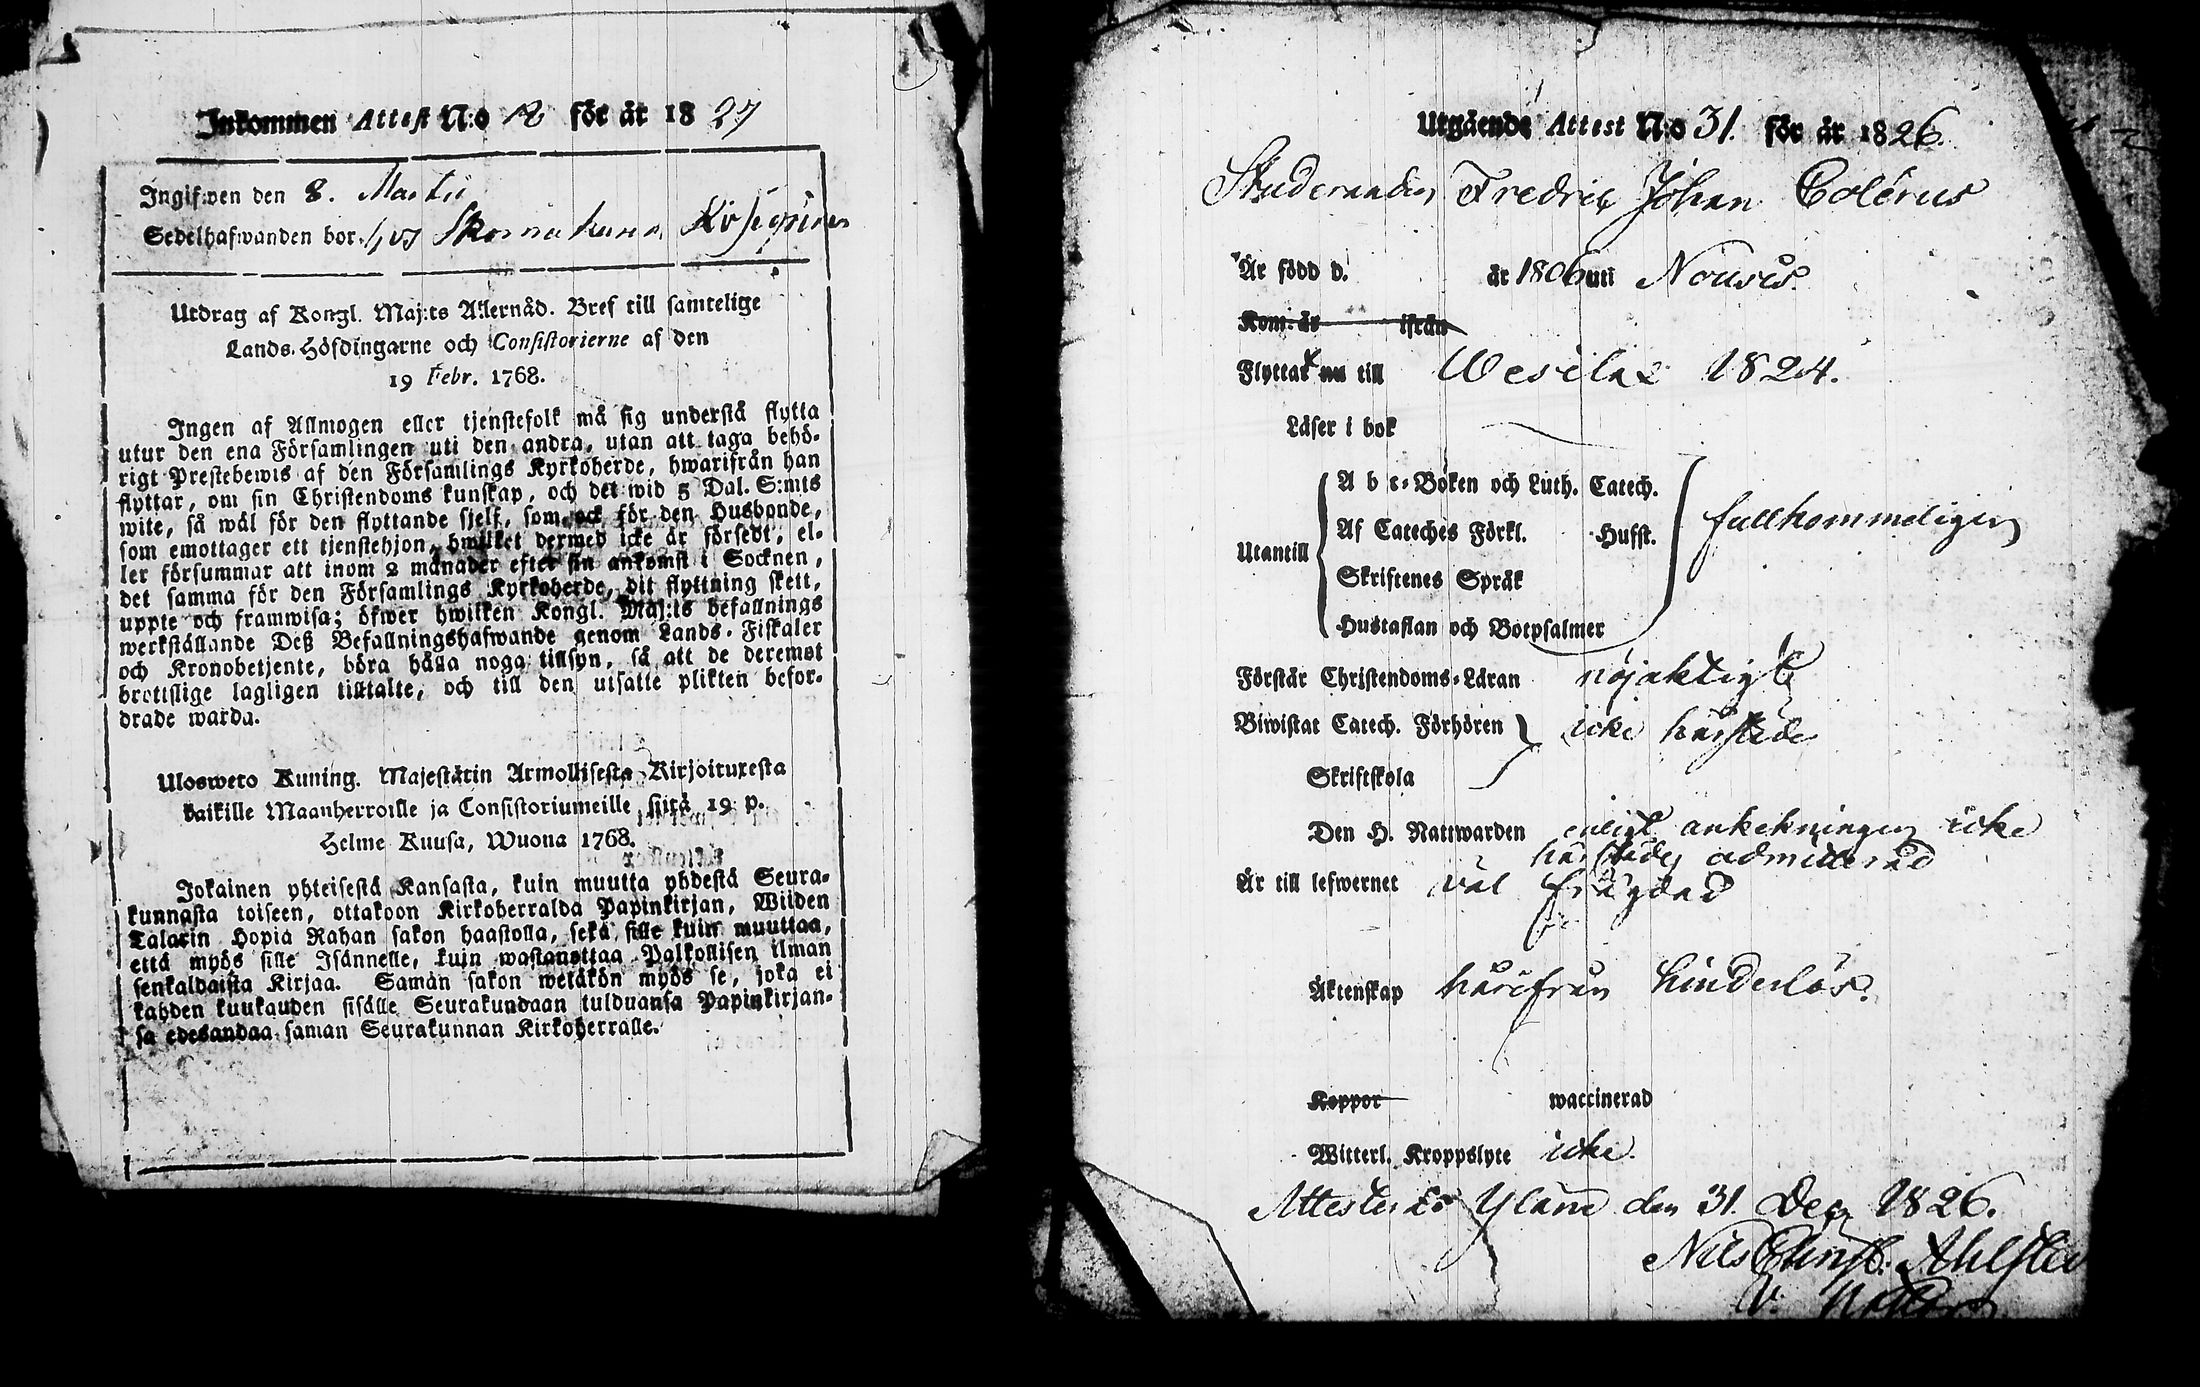 Inkommen Attest N:o 12 för år 1827
Ingifwen den 8. Martii
Sedelhafwanden bor hos
Utdrag af Kongl. Maj:ts Allernåd. Bref till samtelige
Lands-Höfdingarne och Consistorierne af den
19 Febr. 1768.
Ingen af Allmogen eller tjenstefolk må sig understå flytta
utur den ena Församlingen uti den andra, utan att taga behö-
rigt Prestebewis af den Församlings Kyrkoherde, hwarifrån han
flyttar, om sin Christendoms kunskap, och det wid 5 Dal. S:mts
wite, så wäl för den flyttande sjelf, som ock för den Husbonde,
som emottager ett tjenstehjon, hwilket dermed icke är försedt, el-
ler försummar att inom 2 månader efter sin ankomst i Socknen,
det samma för den Församlings Kyrkoherde, dit flyttning skett,
uppte och framwisa; öfwer hwilken Kongl. Maj:ts befallnings
werkställande Deß Befallningshafwande genom Lands-Fiskaler
och Kronobetjente, böra hålla noga tillsyn, så att de deremot
brottslige lagligen tilltalte, och till den utsatte plikten befor-
drade warda.
Ulosweto Kuning. Majestätin Armollisesta Kirjoituxesta
kaikille Maanherroille ja Consistoriumeille siitä 19 p.
Helme Kuusa, Wuona 1768.
Jokainen yhteisestä Kansasta, kuin muutta yhdestä Seura-
kunnasta toiseen, ottakoon Kirkoherralda Papinkirjan, Wiiden
Talarin Hopia Rahan sakon haastolla, sekä sille kuin muuttaa,
että myös sille Isännelle, kuin wastanottaa Palkollisen ilman
senkaldaista Kirjaa. Samän sakon wetäkön myös se, joka ei
kahden kuukauden sisälle Seurakundaan tulduansa Papinkirjan-
sa edesandaa saman Seurakunnan Kirkoherralle.
Utgående Attest N:o 31. för år 1826.
Studeranden Fredric Johan Colérus
Är född d. år 1806 uti Nousis.
Kom. år ifrån
Flyttat nu till Wesilax 1824.
Läser i bok
A b c-Boken och Luth. Catech.
Af Cateches Förkl. Hufst.
Utantill fullkommeligen
Skriftenes Språk
Hustaflan och Botpsalmer
Förstår Christendoms-Läran nöjaktigt
Biwistat Catech. Förhören icke härstädes
Skriftskola
Den H. Nattwarden enligt anteckningen icke
härstädes admitterad
Är till lefwernet väl frägdad
Äktenskap härifrån hinderlös.
Koppor waccinerad
Witterl. Kroppslyte icke.
Attesteras Yläne den 31. Dec. 1826.
Nils
V.